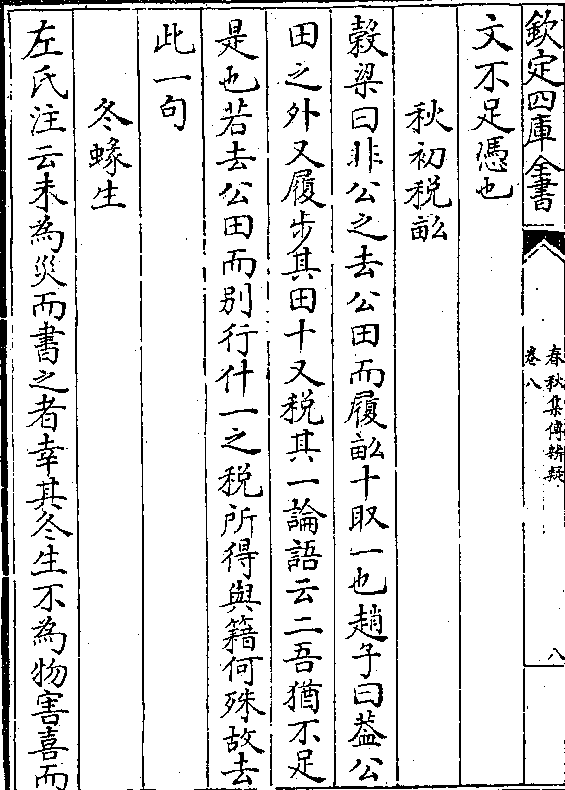 欽定四庫全書
春秋集傳辨疑
卷八
八
文不足憑也
秋初税畝
榖梁曰非公之去公田而履畝十取一也趙子曰葢公
田之外又履步其田十又税其一論語云二吾猶不足
是也若去公田而别行什一之税所得與籍何殊故去
此一句
冬蝝生
左氏注云未為災而書之者幸其冬生不為物害喜而